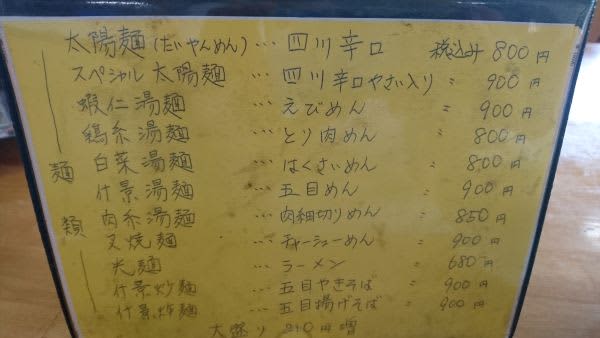 太陽麺(たいやんめん)… 四川辛口 税込み 800円
スペシャル 太陽麺 … 四川辛口やさい入り 〃 900円
蝦仁湯麺 … えびめん 〃 900円
鶏糸湯麺 … とり肉めん 〃 800円
白菜湯麺 … はくさいめん 〃 800円
什景湯麺 … 五目めん 〃 900円
肉糸湯麺 … 肉細切りめん 〃 850円
叉焼麺 … チャーシューめん 〃 900円
光麺 … ラーメン 〃 680円
什景炒麺 … 五目やきそば 〃 900円
什景炸麺 … 五目揚げそば 〃 900円
大盛り 210円増
麺類